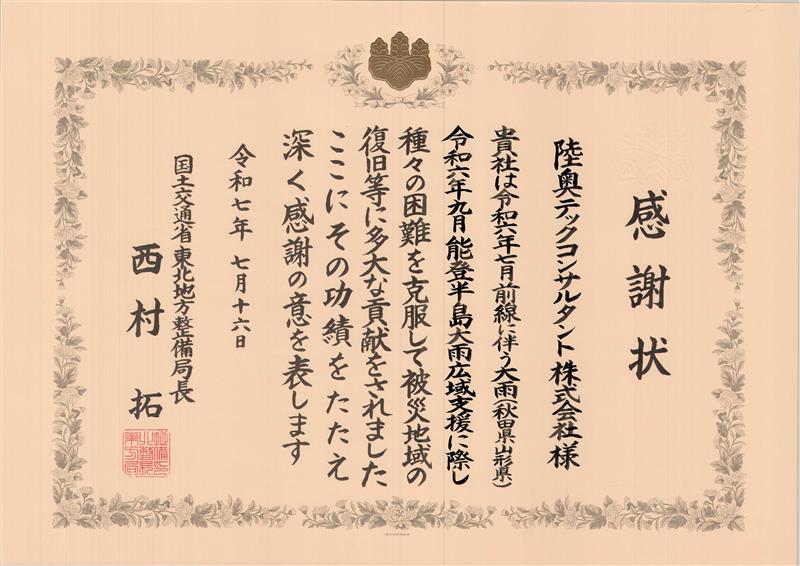 感謝状
陸奥テックコンサルタント株式会社様
貴社は令和六年七月前線に伴う大雨(秋田県山形県)
令和六年九月能登半島大雨広域支援に際し
種々の困難を克服して被災地域の
復旧等に多大な貢献をされました
ここにその功績をたたえ
深く感謝の意を表します
令和七年七月十六日
国土交通省東北地方整備局長
西村拓